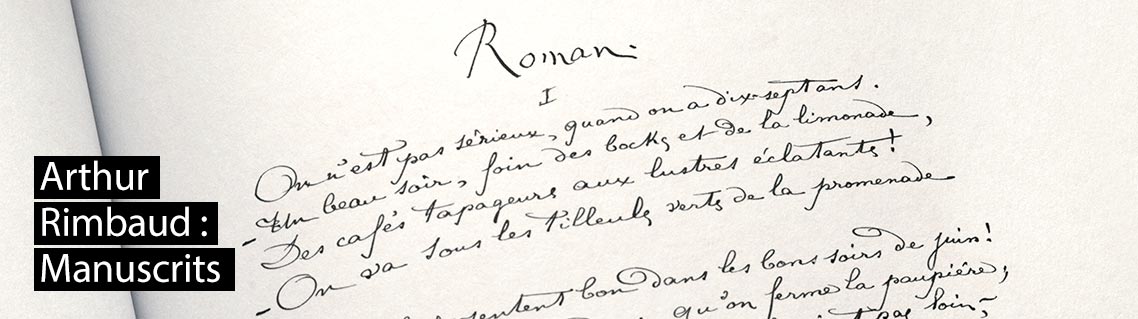 Arthur
Rimbaud :
Manuscrits
Roman.
I
On n'est pas sérieux, quand on a dix-sept ans.
- Un beau soir, foin des bocks et de la limonade,
Des cafés tapageurs aux lustres éclatants!
- On va sous les tilleuls verts de la promenade
sentent bon dans les bons soirs de juin!
qu'on ferme la paupière;
pas loin,